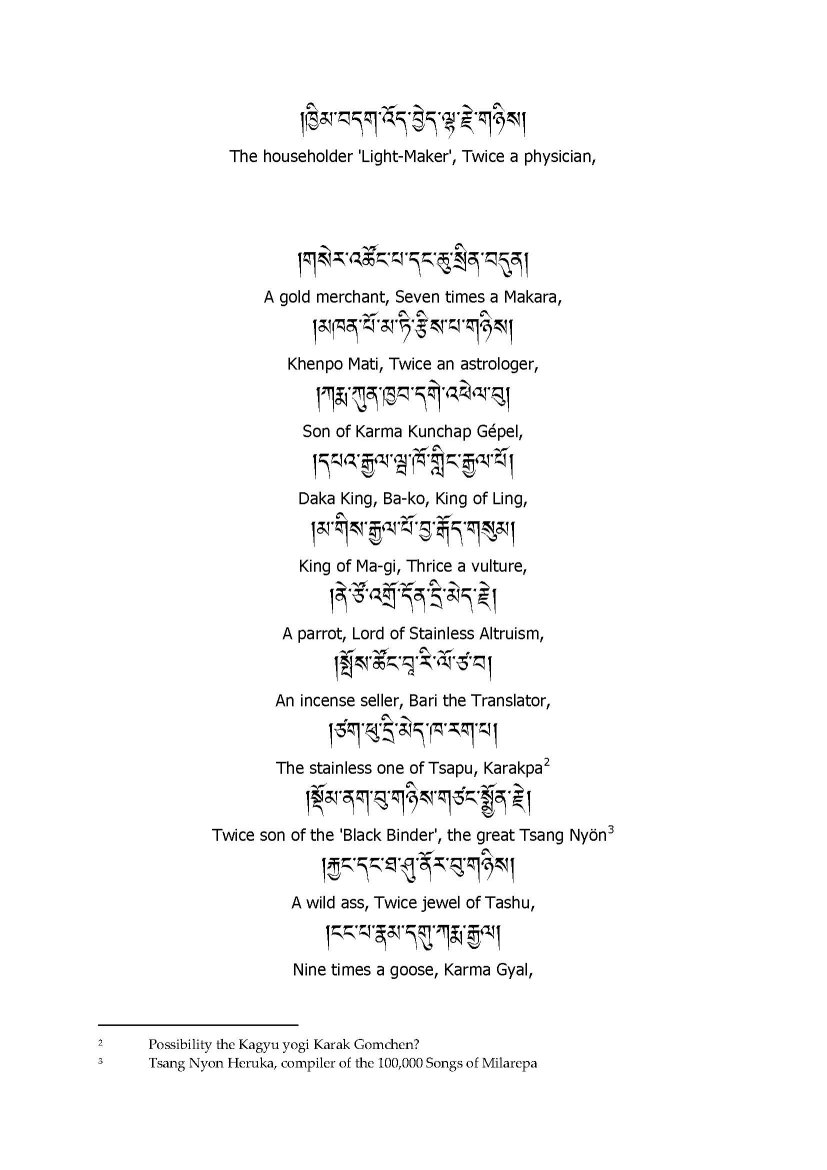 །ཁྱིམ་བདག་འོད་བྱེད་ལྷ་རྗེ་གཉིས།
The householder 'Light-Maker', Twice a physician,
།གསེར་འཚོང་པ་དང་ཆུ་སྲིན་བདུན།
A gold merchant, Seven times a Makara,
།མཁན་པོ་མ་ཏི་རྩིས་པ་གཉིས།
Khenpo Mati, Twice an astrologer,
།ཀརྨ་ཀུན་ཁྱབ་དགེ་འཕེལ་བུ།
Son of Karma Kunchap Gépel,
།དཔའ་རྒྱལ་ལྦ་ཁོ་གླིང་རྒྱལ་པོ།
Daka King, Ba-ko, King of Ling,
།མ་གིས་རྒྱལ་པོ་བྱ་རྒོད་གསུམ།
King of Ma-gi, Thrice a vulture,
།ནེ་ཙོ་འགྲོ་དོན་དྲི་མེད་རྗེ།
A parrot, Lord of Stainless Altruism,
།སྤོས་ཚོང་བཱ་རི་ལོ་ཙ་བ།
An incense seller, Bari the Translator,
།ཙག་ཕུ་དྲི་མེད་ཁ་རག་པ།
The stainless one of Tsapu, Karakpa2
།སྡོམ་ནག་བུ་གཉིས་གཙང་སྨྱོན་རྗེ།
Twice son of the 'Black Binder', the great Tsang Nyön3
།རྐྱང་དང་ཐ་ཤུ་ནོར་བུ་གཉིས།
A wild ass, Twice jewel of Tashu,
།ངང་པ་རྣམ་དགུ་ཀརྨ་རྒྱལ།
Nine times a goose, Karma Gyal,
2 Possibility the Kagyu yogi Karak Gomchen?
3 Tsang Nyon Heruka, compiler of the 100,000 Songs of Milarepa